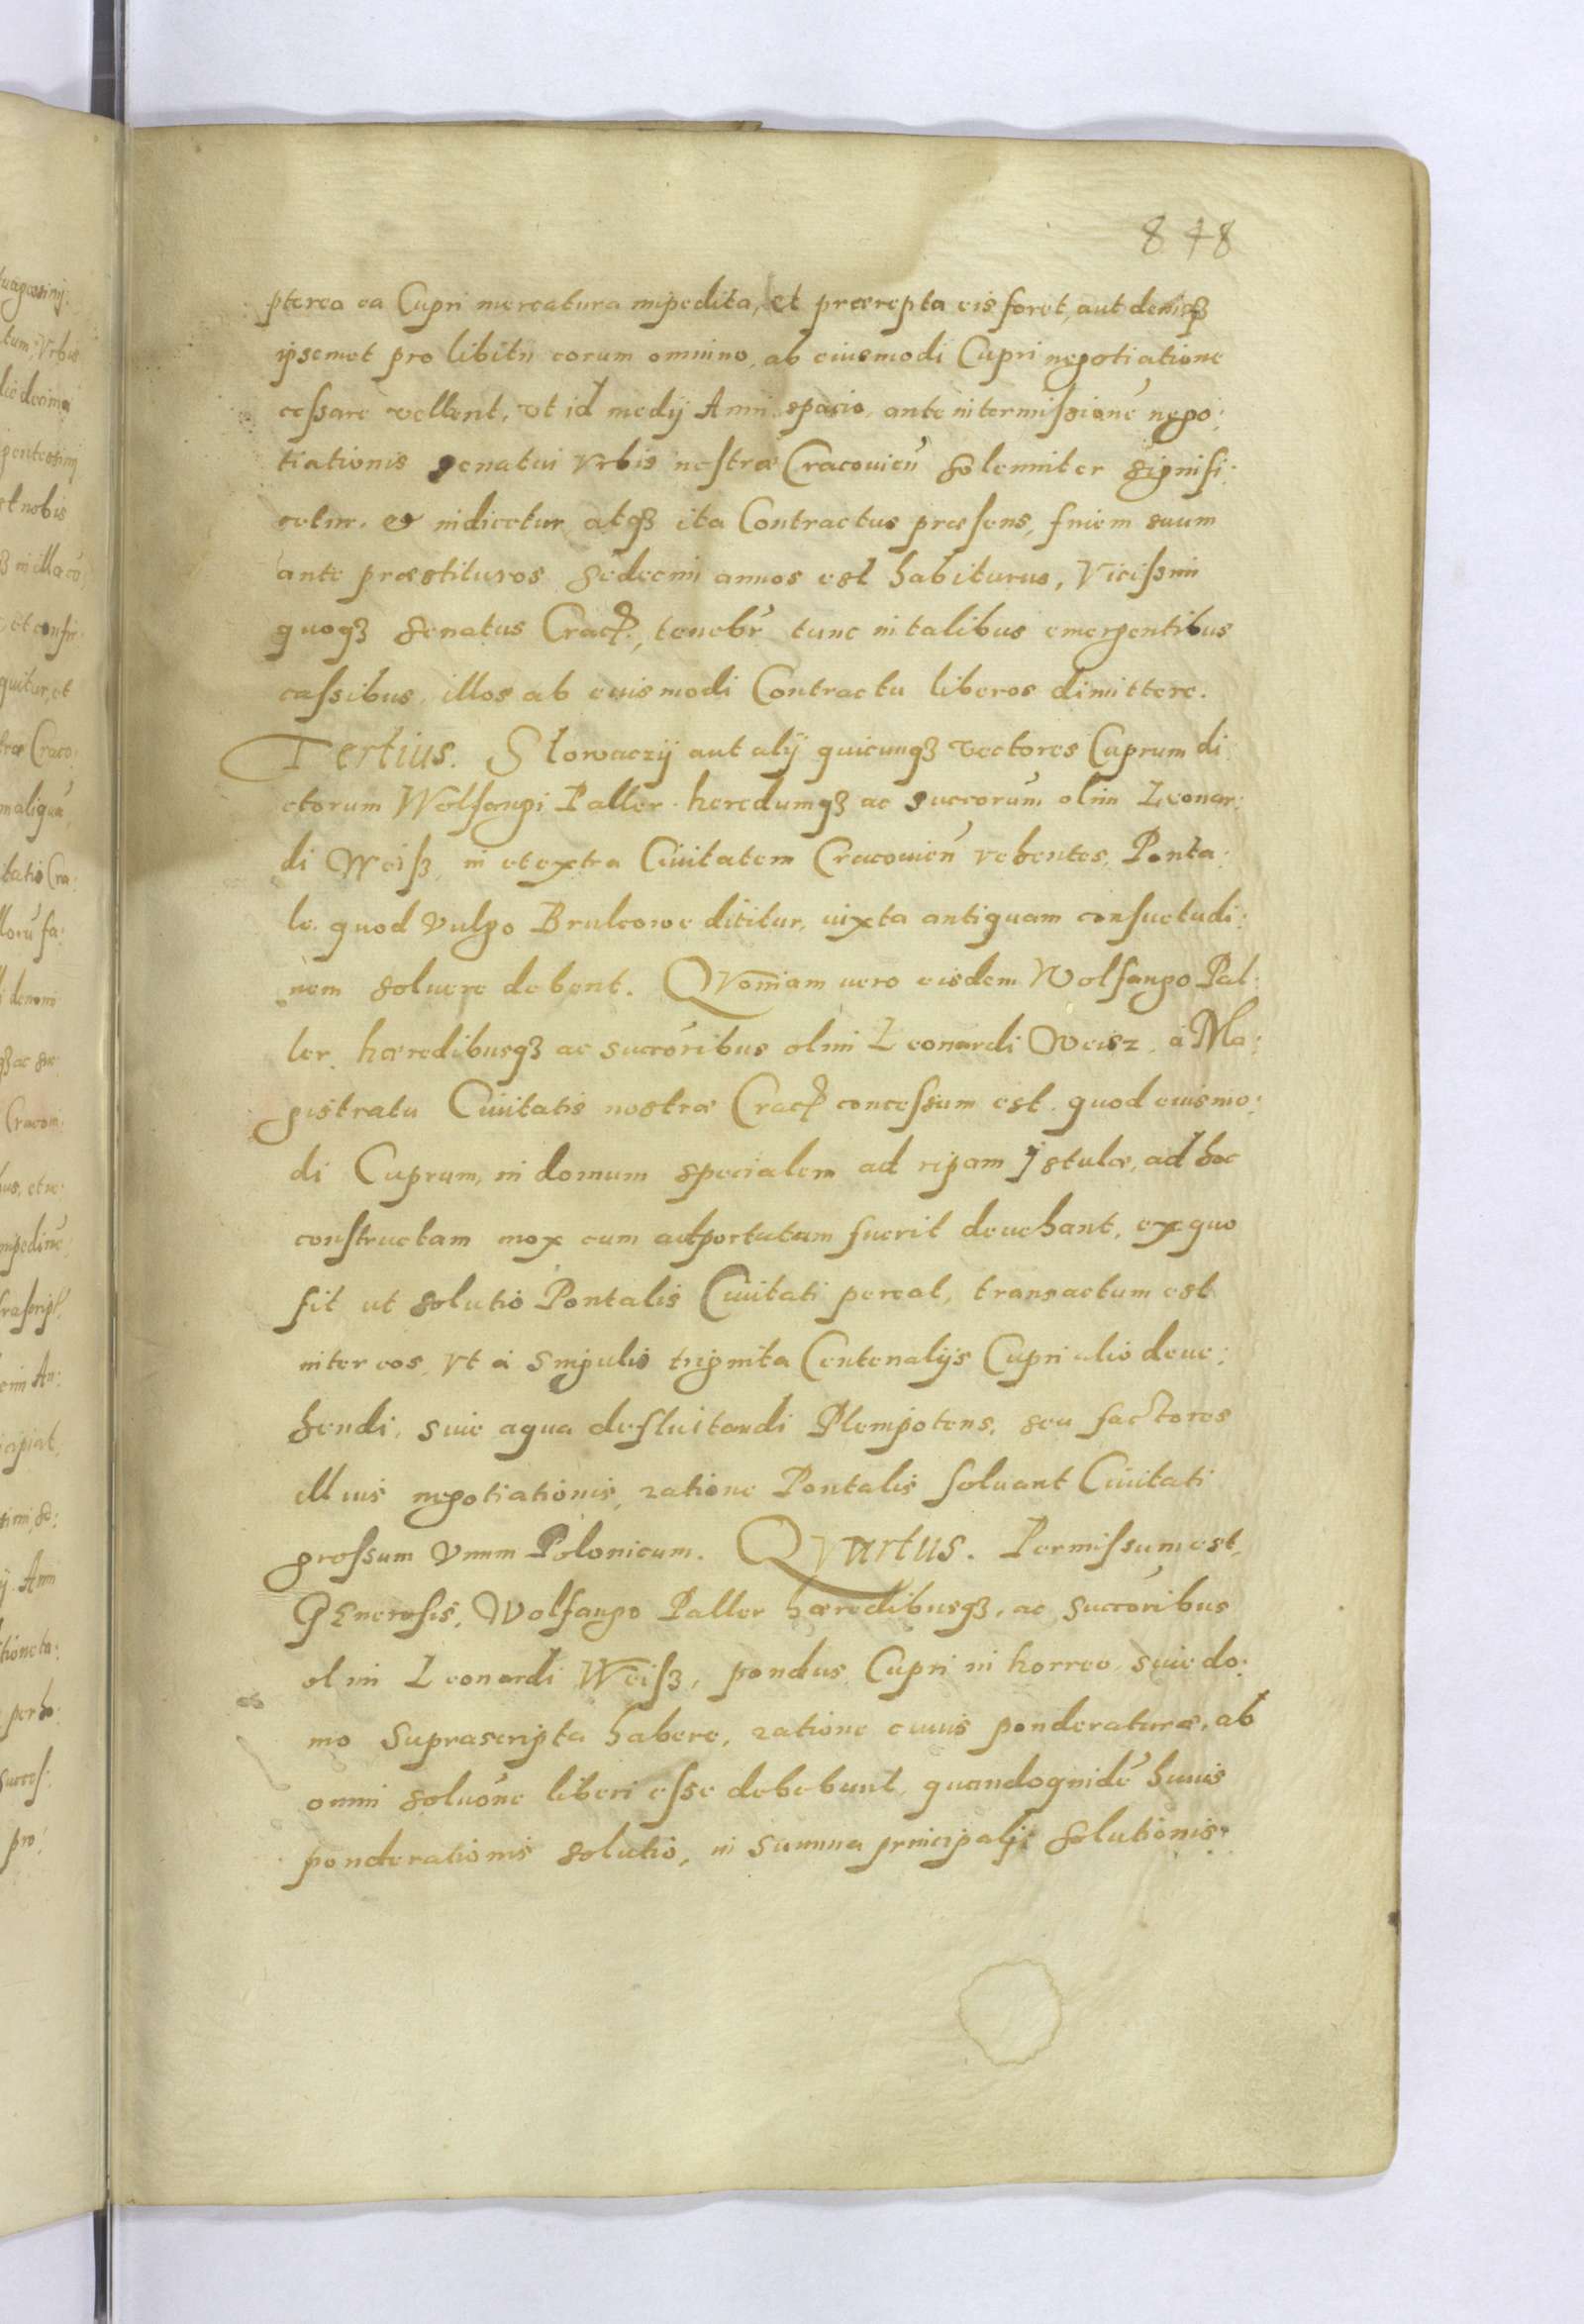 848
pterea ea Cupri mercatura impedita, et praerepta eis foret, aut deniqȝ
ipsemet pro libitu eorum omnino, ab eiusmodi Cupri negotiatione
cessare vellent, vt id medij Anni spacio, ante intermissionē nego:
tiationis senatui Vrbis nestrae Cracouień solenniter signifi:
cetur, et indicetur atqȝ ita Contractus praesens, finem suum
ante praestitutos sedecim annos est habiturus, Vicissim
quoqȝ senatus Crac., tenebr̄ tunc in talibus emergentibus
cassibus, illos ab euismodi Contractu liberos dimittere.
Tertius. Slowaczij aut alij quicunqȝ vectores Cuprum di
ctorum Wolfangi Paller heredumqȝ ac succorum̄ olim Leonar:
di Weisȝ, in et extra Ciuitatem Cracouień vehentes, Ponta:
le, quod vulgo Brulcowe dicitur, iuxta antiquam consuetudi:
nem soluere debent. Qvoniam uero eisdem Wolfango Pal:
ler, haeredibusqȝ ac succoribus olim Leonardi Weisz, a Ma:
gistratu Ciuitatis nostrae Crac concessum est, quod eiusmo:
di Cuprum, in domum specialem ad ripam Istulae, ad hoc
constructam mox cum adportatum fuerit deuehant, ex quo
fit ut solutio Pontalis Ciuitati pereat, transactum est
inter eos, vt a singulis triginta Centenalijs Cupri alio deue:
hendi, siue aqua defluitandi Plenipotens, seu factores
illius negotiationis, ratione Pontalis soluant Ciuitati
grossum vnum Polonicum. Qvartus. Permissum est,
Generosis, Wolfango Paller haeredibusqȝ, ac succoribus
olim Leonardi Weisȝ, pondus Cupri in horreo, siue do:
mo suprascripta habere, ratione cuius ponderaturae, ab
omni soluōne liberi esse debebunt, quandoquidē huius
ponderationis solutio, in summa principalis solutionis